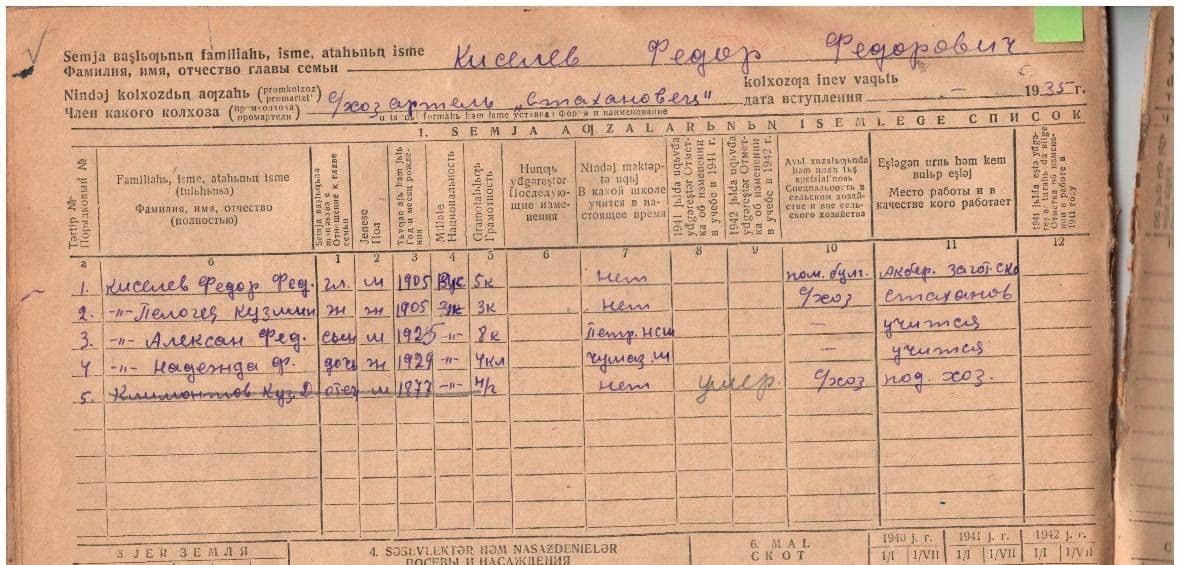 Semja başlьƣьnьꞑ familiahь, isme, atahьnьꞑ isme
Фамилия, имя, отчество главы семьи Киселев Федор Федорович
Nindəj kolxozdьꞑ aƣzahь (promkolxoz promartel')
Член какого колхоза (промколхоза промартели) с/хоз артель „Стахановец"
kolxozƣa inev vaqьtь
дата вступления – 1935 г.
1. SEMJA AƢZALARЬNЬꞐ ISEMLEGE СПИСОК
Tərtip № Порядковый №
Familiahь, isme, atahьnьꞑ isme (tulьhьnsa)
Фамилия, имя, отчество (полностью)
Отношение к главе семьи
Jenese Пол
Год и месяц рождения
Milləte Национальность
Gramotalьlьƣь Грамотность
Последующие изменения
Nindəj məktəptə uqьj
В какой школе учится в настоящее время
1941 jьlda uqьvda ydgəreştər Отметка об изменении в учебе в 1941 г.
1942 jьlda uqьvda ydgəreştər Отметка об изменении в учебе в 1942 г.
Специальность в сельском хозяйстве и вне сельского хозяйства
Eşləgən urnь həm kem bulьp eşləj
Место работы и в качестве кого работает
Отметка об изменении в работе в 1941 году
а б 1 2 3 4 5 6 7 8 9 10 11 12
1. Киселев Федор Фед. гл. м 1905 Рус 5к нет пом. булг.
2. -"- Пелогея Кузмин ж ж 1905 3к нет с/хоз Стаханов
3. -"- Алексан Фед. сын м 1925 -"- 8к Петр. НСШ – учится
4 -"- Надежда Ф. дочь ж 1929 -"- 4кл Чумаз. ш – учится
5. Климонтов Куз Д отец м 1877 -"- н/г нет умер. с/хоз под. хоз.
3. JER ЗЕМЛЯ
4. SƏSEVLEKTƏR HƏM NASAZDENIELƏR
ПОСЕВЫ И НАСАЖДЕНИЯ
6. MAL
СКОТ
1940 j. г. 1941 j. г. 1942 j. г.
1/I 1/VII 1/I 1/VII 1/I 1/VII